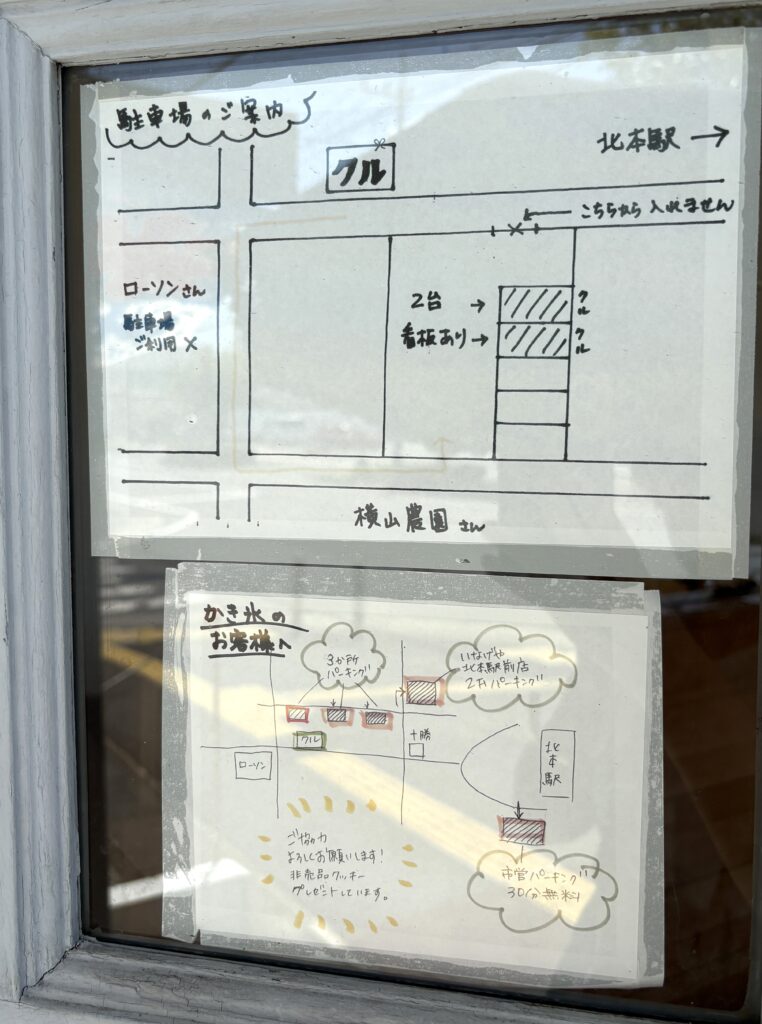 駐車場のご案内
北本駅→
クル
こちらから 入れません
ローソンさん
駐車場
ご利用 ×
2台→
看板あり→
クル
クル
横山農園さん
かき氷の
お客様へ
3か所
パーキング
いなげや
北本駅前店
クル
十勝
ローソン
北本駅
ご協力
よろしくお願いします!
非売品クッキー
プレゼントしています。
市営パーキング
30分無料